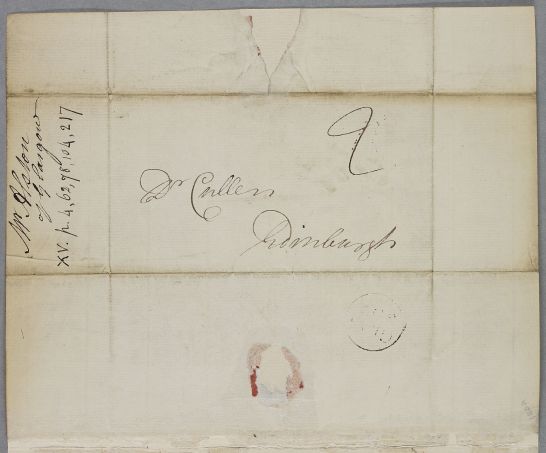 Mr Alston
of Glasgow
XV. p. 4, 62, 78, 104, 217
2
Dr Cullen
Edinburgh